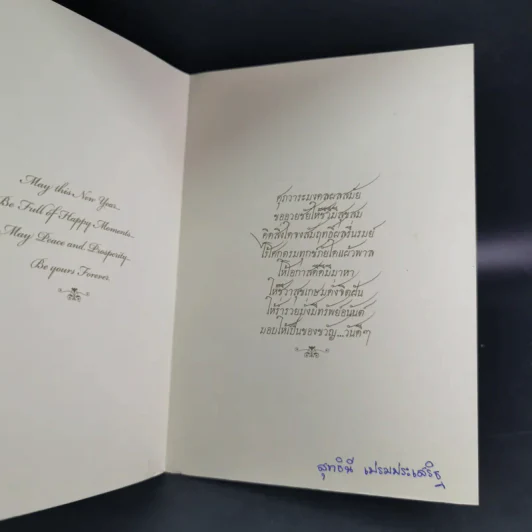 May this New Year
Be Full of Happy Moments.
May Peace and Prosperity
Be yours Forever.
ศุภวาระมงคลผลสมัย
ขออวยชัยให้ชีวีมีสุขสม
คิดสิ่งใดจงสัมฤทธิ์ผลชื่นรมย์
ไร้โศกตรมทุกข์ภัยใดแผ้วพาล
ให้โอกาสดีดีมีมาหา
ให้ชีวาสุขเกษมดังจิตฝัน
ให้ร่ำรวยมั่งมีทรัพย์อนันต์
มอบให้เป็นของขวัญ...วันดีๆ
สุทธินี เปรมประเสริฐ